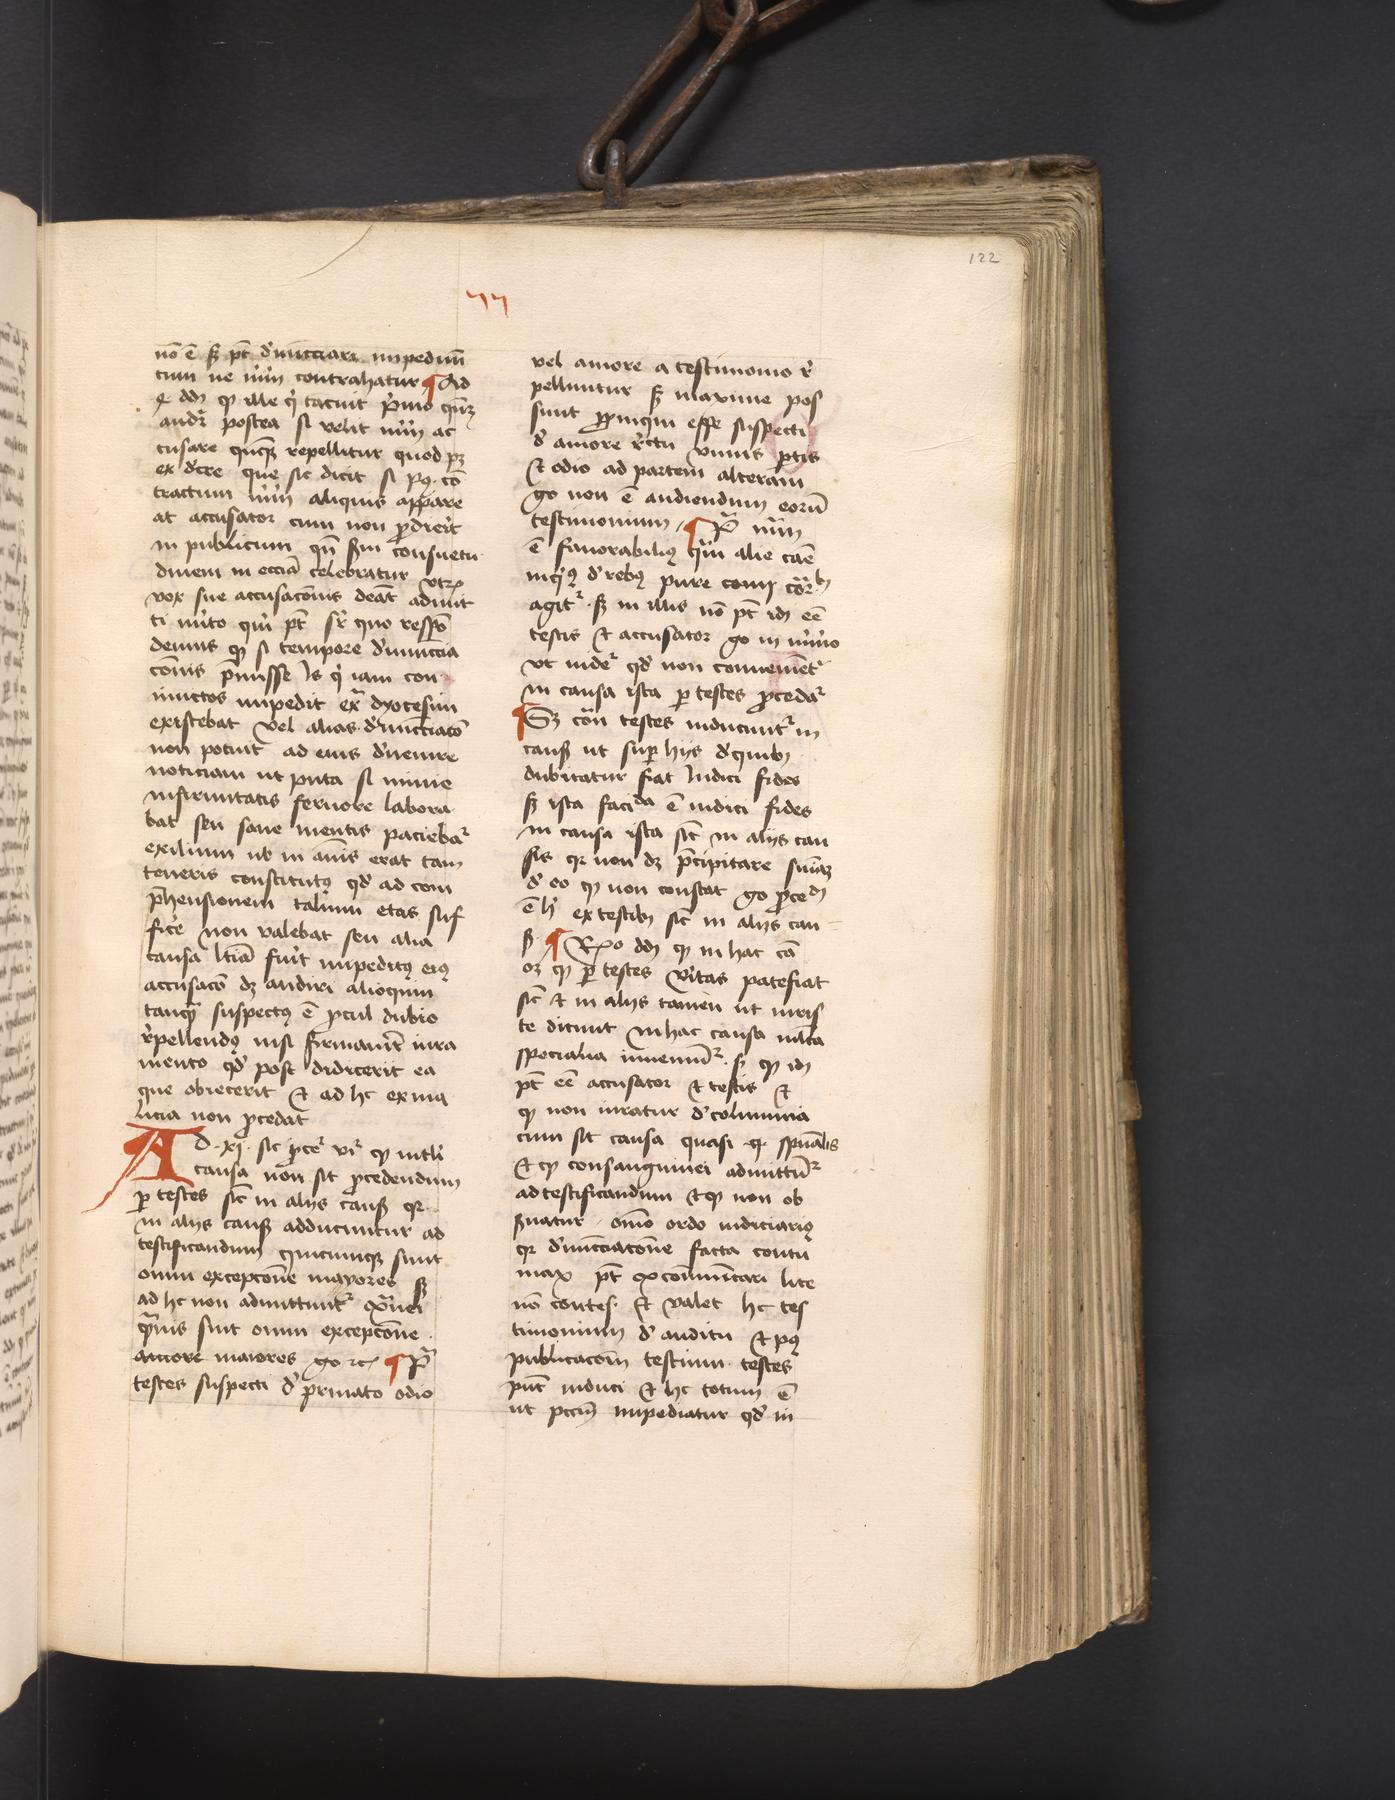 122
nō ē sꝫ pt̄ dn̄ucciari impedim̄
tum ne mr̄m contrahatur ¶ Ad
dd̄m ꝙ ille qͥ tacuit pͥmo
audr̄ postea si velit mr̄m ac
cusare repellitur quod pꝫ
ex dcre que sic dicit si pꝰ cō
tractum mr̄m aliquis appare
at accusator cum non ꝓdierit
in publicum qn̄ sm̄ consuetu
dinem in eccia celebratur vtrꝫ
vox sue accusacōnis debeat admit
ti mͥto qͥri pt̄ sr̄ quo respō
demus ꝙ si tempore dn̄uccia
cōnis p̄misse is qͥ iam con
iunctos impedit exͣ dyocesim
existebat vel alias dn̄ucciatō
non potuit ad eius deuenire
noticiam ut puta si nimie
infirmitatis feruore labora
bat seu sane mentis paciebaͬ
exilium ub in ānis erat tam
teneris constitutꝰ qd̓ ad com
p̄hensionem talium etas suf
fic̓e non valebat seu alia
causa ltīa fuit impeditꝰ eiꝰ
accusacō dꝫ audiri alioquin
tanqͣ suspectꝰ ē ꝓcul dubio
r̓pellendꝰ nisi firmauit iura
mento qd̓ post didicerit ea
que obiecerit et ad hc ex ma
licia non ꝓcedat
Ad xi sic ꝓceͬ vrͬ ꝙ mtl̓i
causa non sit ꝓcedendum
ꝑ testes sic̄ in alijs caus̄ qꝛ
in alijs caus̄ adducuntur ad
testificandum quicumqꝫ sunt
omni excepcōne mayores sꝫ
ad hc non admittuntͬ
qͣmuis sint omni excepcōne
maiores go ꝛc̄ ¶ Pͣ
testes suspecti d̓ priuato odio
vel amore a testimonio r̓
pelluntur sꝫ maxime pos
sunt ꝓpinqui esse suspecti
d̓ amore r̓ctu vnius ꝑtis
et odio ad partem alteram
go non ē audiendum eorū
testimonium ¶ Pͣ mr̄m
ē fauorabiliꝰ qͣm alie cāe
d̓ rebꝰ pure
agitͬ sꝫ in illis nō pt̄ idꝫ eē
testis et accusator go in mr̄io
vt videͬ qd̓ non conuenientͬ
in causa ista ꝑ testes ꝓcedaͬ
¶ Sꝫ cōn testes inducuntͬ in
caus̄ ut suꝑ hijs d̓ quibꝫ
dubitatur fiat Iudici fides
sꝫ ista faciͩᵃ ē iudici fides
in causa ista sic̄ in alijs cau
sis qꝛ non dꝫ p̄cipitare smāꝫ
d̓ eo ꝙ non constat go ꝓced
ē hͥ ex testibꝫ sic̄ in alijs cau
s̄ ¶ Rō dd̄m ꝙ in hac cā
oꝫ ꝙ ꝑ testes v̓itas patefiat
sic̄ et in alijs tamen ut iuris
te dicunt in hac causa ml̄ta
specialia inueniuntͬ sꝫ ꝙ idꝫ
pt̄ eē accusator et testis et
ꝙ non iuratur d̓ columnia
cum sit causa quasi qͣ spūalis
et ꝙ consanguinei admittūͬ
ad testificandum et ꝙ non ob
s̓uatur omō ordo iudiciariꝰ
qꝛ dn̄ucciatōne facta contu
max pt̄ excommunicari lite
nō contes. et valet hc tes
timonium d̓ auditu et pꝰ
publicacōm testium testes
pn̄t induci et hc totum ē
ut pccm̄ impediatur qd̓ in